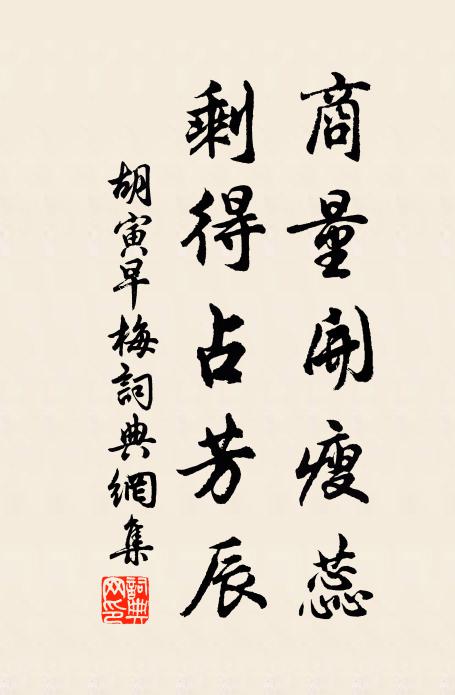 商量開瘦蕊
剩得占芳辰
胡寅早梅詞典網集
詞典網印